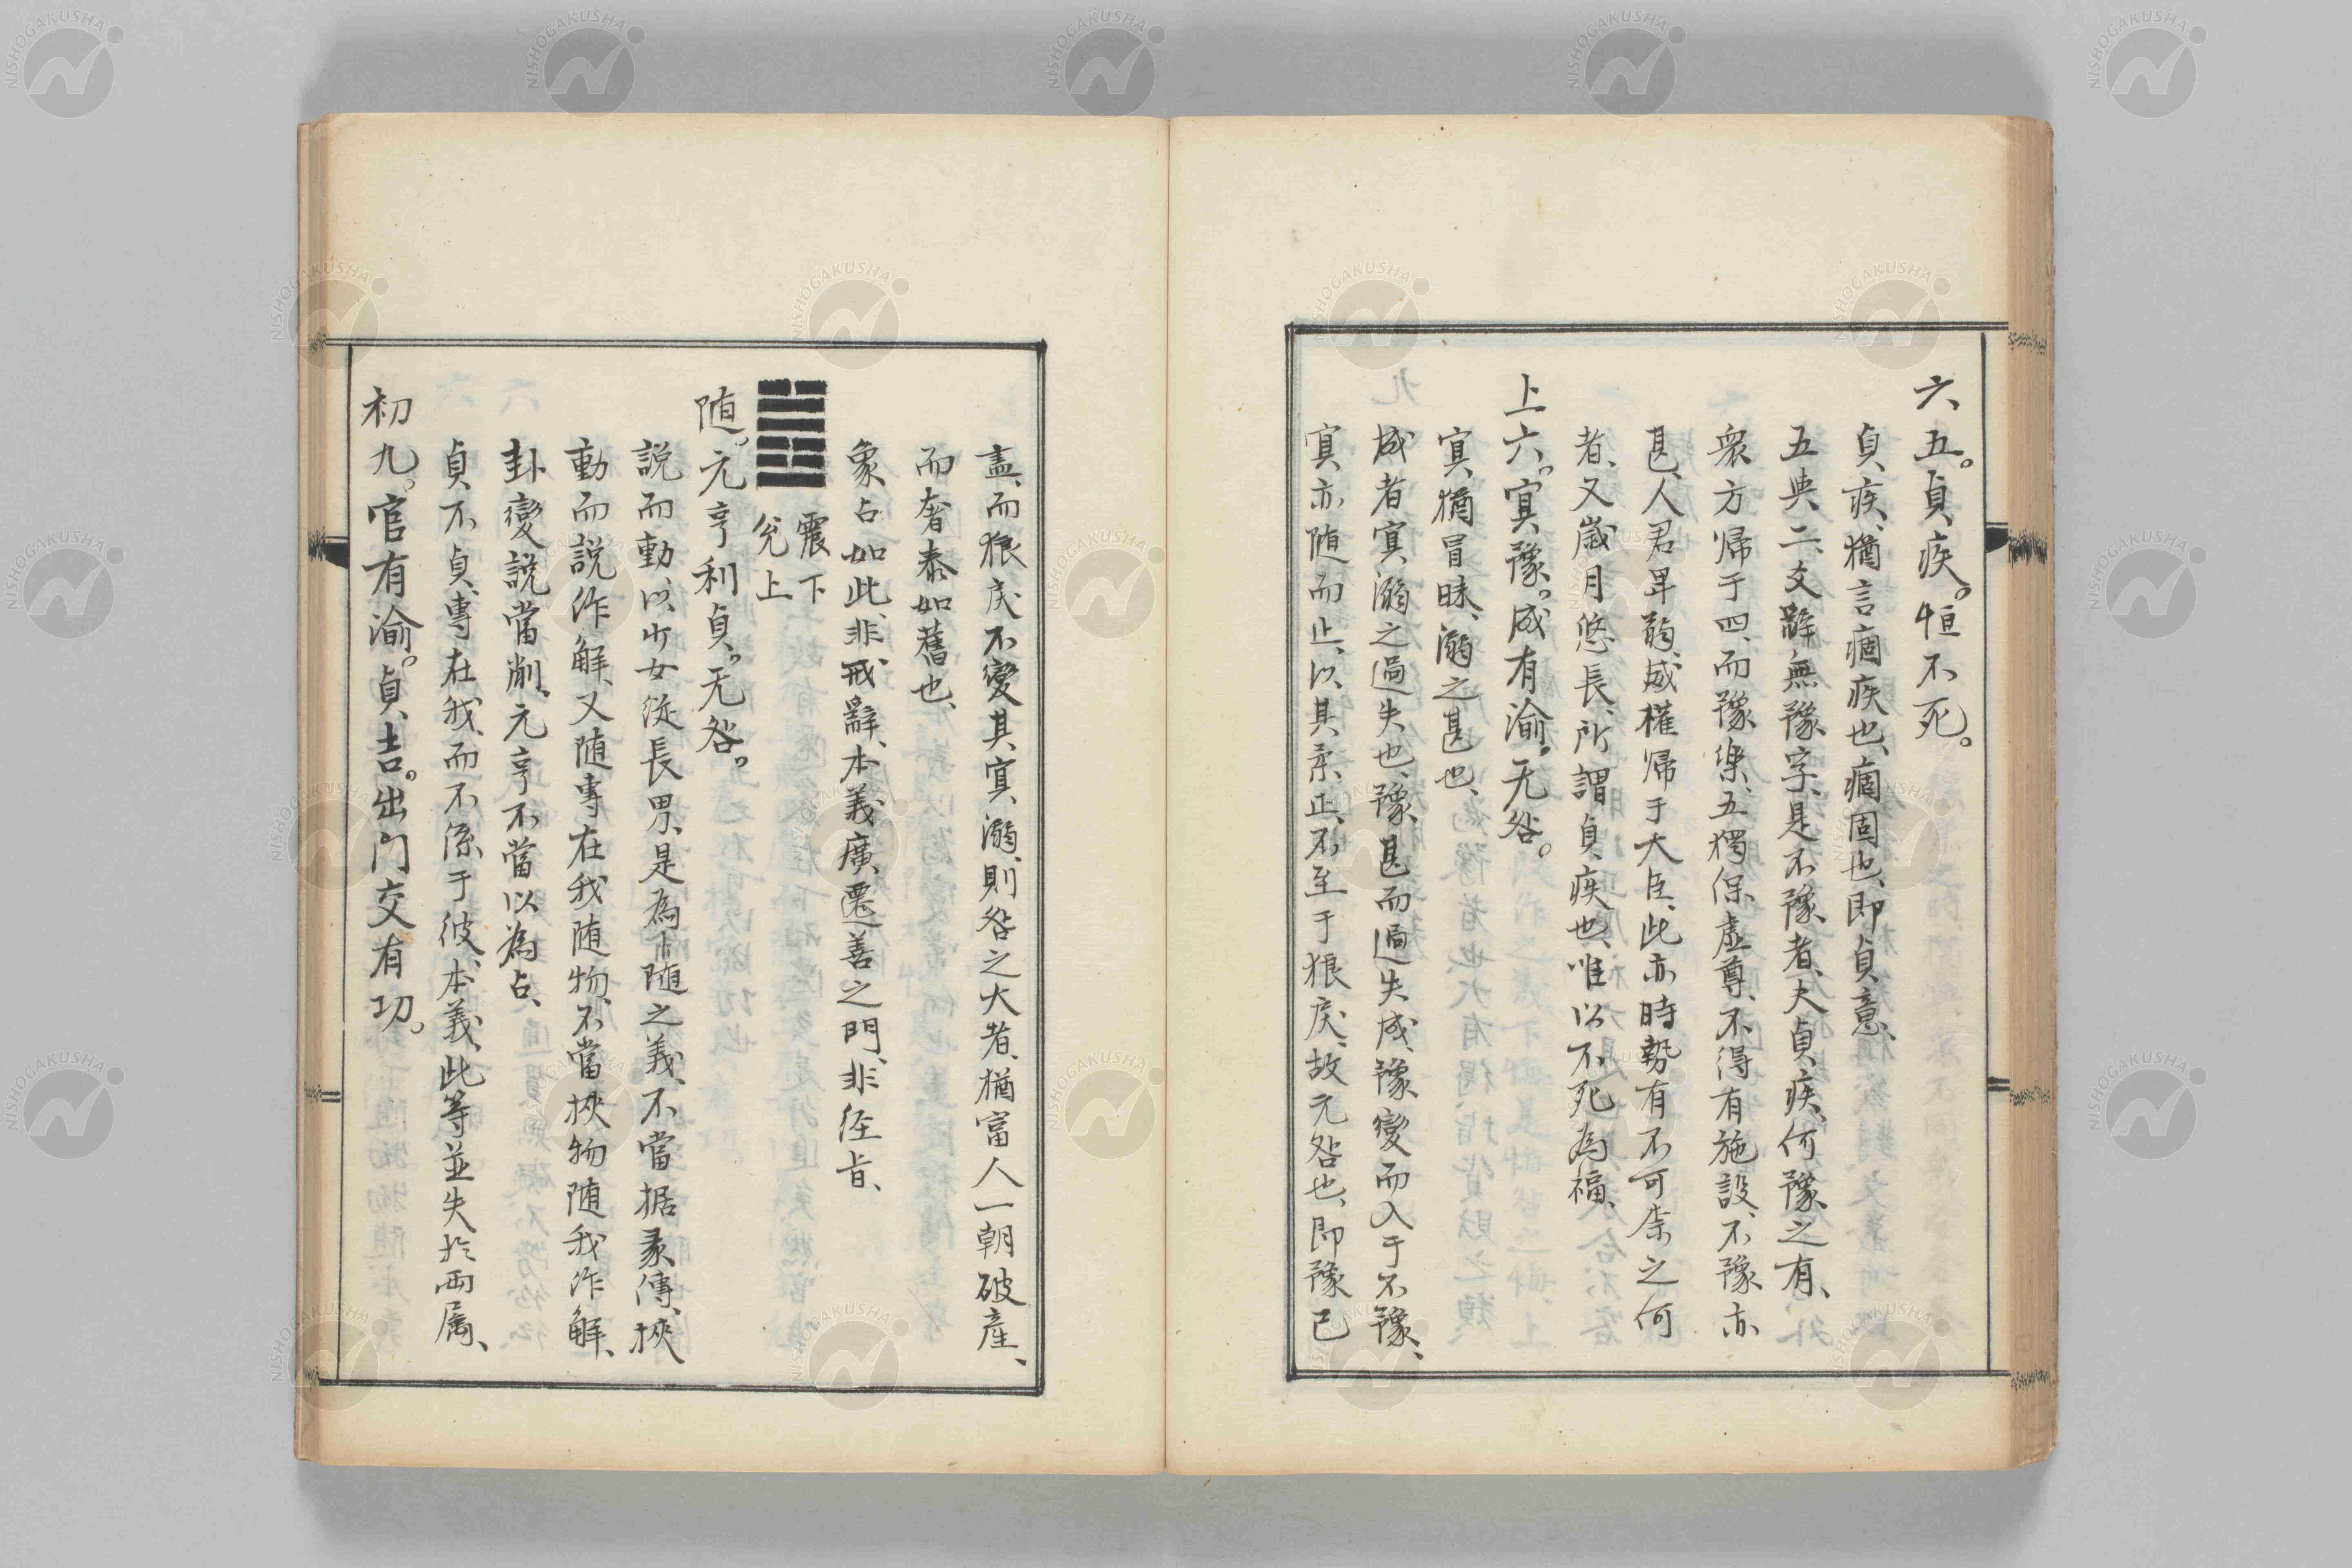 六五。貞疾。恒不死。
貞疾、猶言痼疾也、痼固也、即貞意、
五與二、爻辭無豫字、是不豫者、夫貞疾、何豫之有、
衆方帰于四、而豫樂、五獨保虚尊、不得有施設、不豫亦
甚、人君卑弱、威權帰于大臣、此亦時勢有不可柰之何
者、又歳月悠長、所謂貞疾也、唯以不死為福、
上六。冥豫。成有渝。无咎。
冥、猶冒昧、溺之甚也、
成者冥溺之過失也、豫甚而過失成、豫變而入于不豫、
冥亦随而止、以其柔正、不至于狠戻、故无咎也、即豫已
盡、而狠戻不變其冥溺、則咎之大者、猶富人一朝破産、
而奢泰如舊也、
象占如此、非戒辭、本義廣遷善之門、非経旨、
震下
兊上
随。元亨利貞。无咎。
説而動、以少女従長男、是為随之義、不當据彖傳、挾
動而説作解、又随專在我随物、不當挾物随我作解、
卦變説當削、元亨不當以為占、
貞不貞、專在我、而不係于彼、本義、此等並失於両属、
初九。官有渝。貞吉。出門交有功。
NISHOGAKUSHA